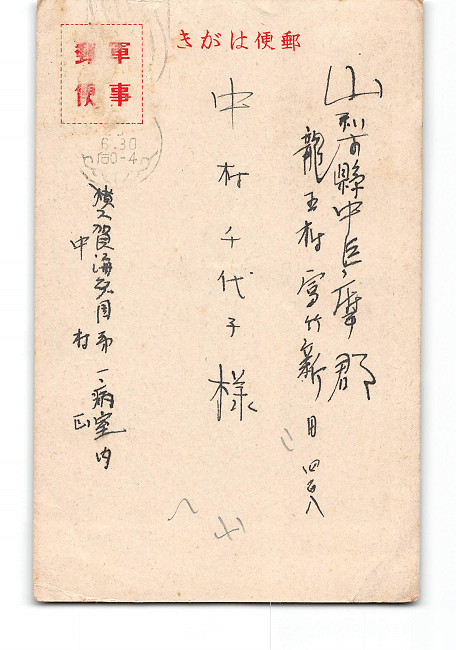 郵便はがき
軍事
郵便
6.30
后0-4
山梨縣中巨摩郡
龍王村富竹新田四百八
中村千代子様
横須賀海兵団第一病室内
中村正